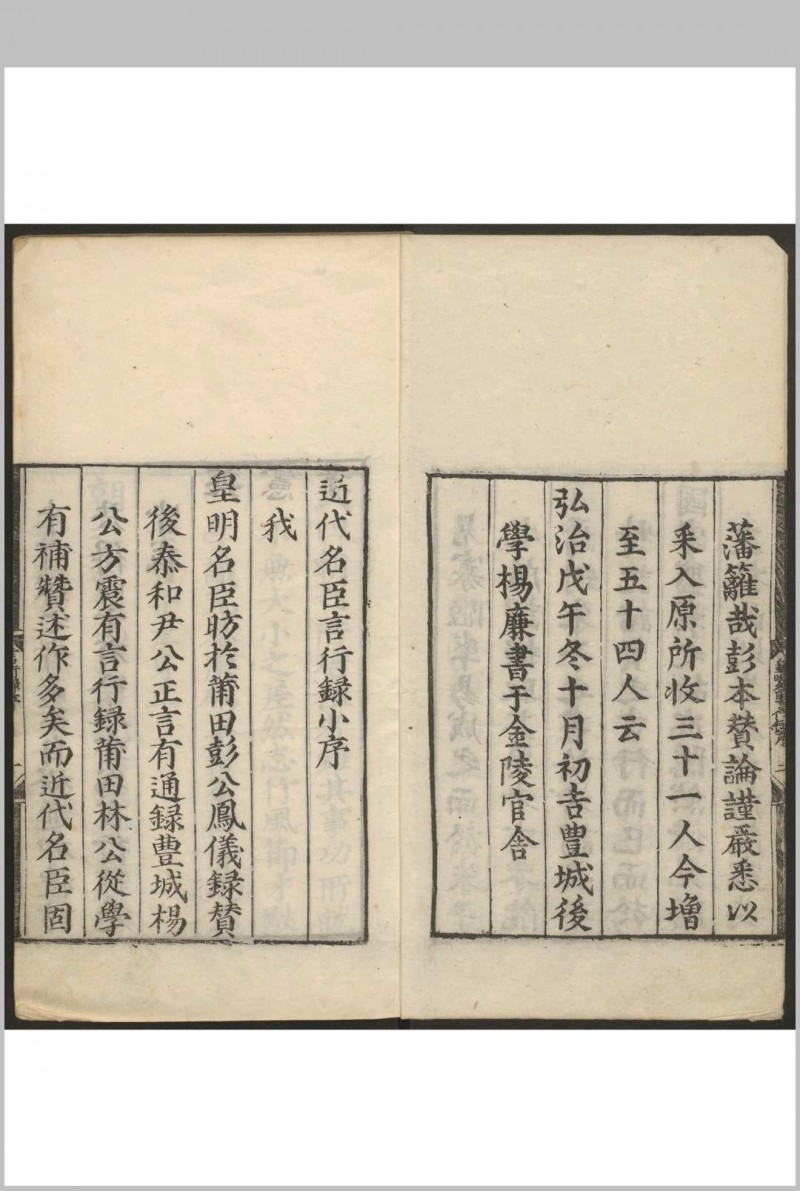 藩籬哉彭本贊論謹嚴悉以
釆入原所收三十一人今增
至五十四人云
弘治戊午冬十月初吉豐城後
學楊廉書于金陵官舍
近代名臣言行録小序
我
皇明名臣昉於莆田彭公鳳儀録贊
後泰和尹公正言有通録豊城楊
公方震有言行録莆田林公從學
有補贊述作多矣而近代名臣固